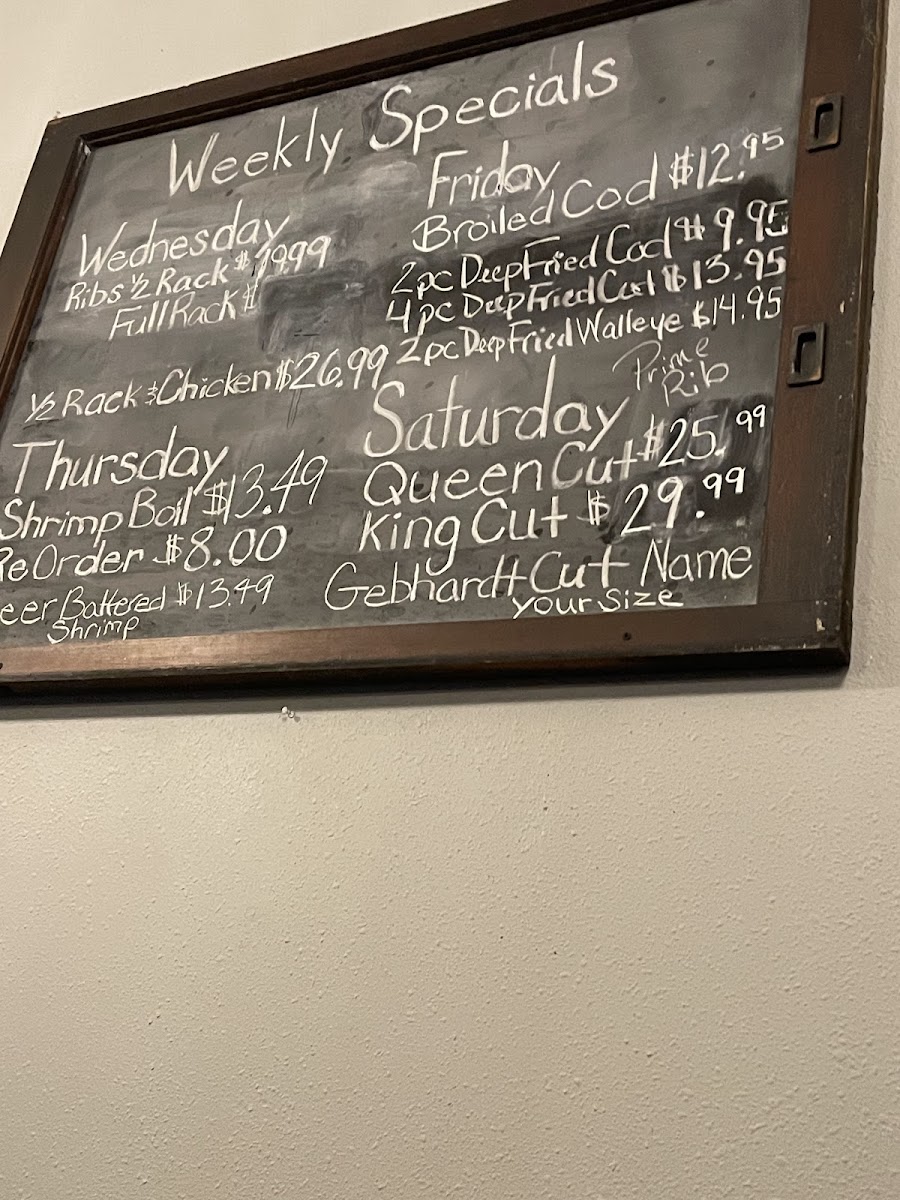 Weekly Specials
Wednesday
Ribs 1/2 Rack $19.99
Full Rack $
1/2 Rack & Chicken $26.99
Thursday
Shrimp Boil $13.49
ReOrder $8.00
eer Battered $13.49
Shrimp
Friday
Broiled Cod $12.95
2pc Deep Fried Cod $9.95
4pc Deep Fried Cod $13.95
2pc Deep Fried Walleye $14.95
Saturday Prime
Rib
Queen Cut $25.99
King Cut $29.99
Gebhardt Cut Name
your Size